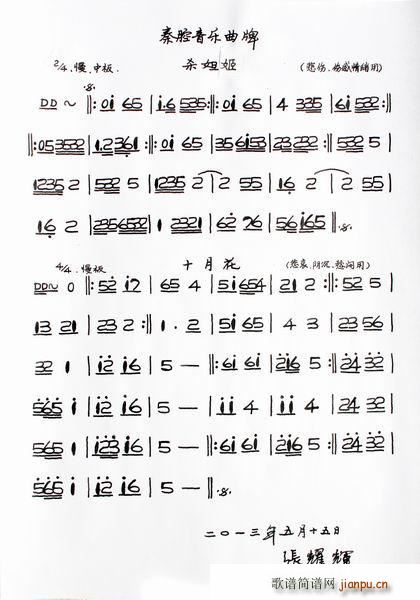 秦腔音乐曲牌
2/4、慢、中板. 杀妲姬 (悲伤、伤感情绪用)
DD～ ‖: 0i 65 | i.6 535 :‖: 0i 65 | 4 335 | 6532 :‖
‖: 053532 | 1.2361 :‖: 0i 65 | 356153 | 23232 :‖: 532 5 |
1235 2 | 2325 5 | 1235 2 | 2 55 | 16 2 | 2 55 |
16 2 | 2356532 | 1 2321 | 62 76 | 56165 ‖
4/4、慢板 十月花 (悲哀、阴沉、愁闷用)
DD～ 0 ‖: 52 i7 | 65 4 | 5i654 | 21 2 :‖: 5 5 |
13 21 | 23 2 :‖ 1 . 2 | 5i 65 | 4 3 | 23 56 |
32 1 | i2 i6 | 5 — ‖: 6i 6i | 2i6 5 :‖: 24 32 |
565 i | i2 i6 | 5 — | ii 4 | ii 4 | 24 32 |
565 i | i23 i6 | 5 — ‖: 6i 6i | 2i6 5 :‖ 24 32 |
565 i | i2 i6 | 5 — ‖
二〇一三年五月十五日
張耀輝
歌谱简谱网
jianpu.cn